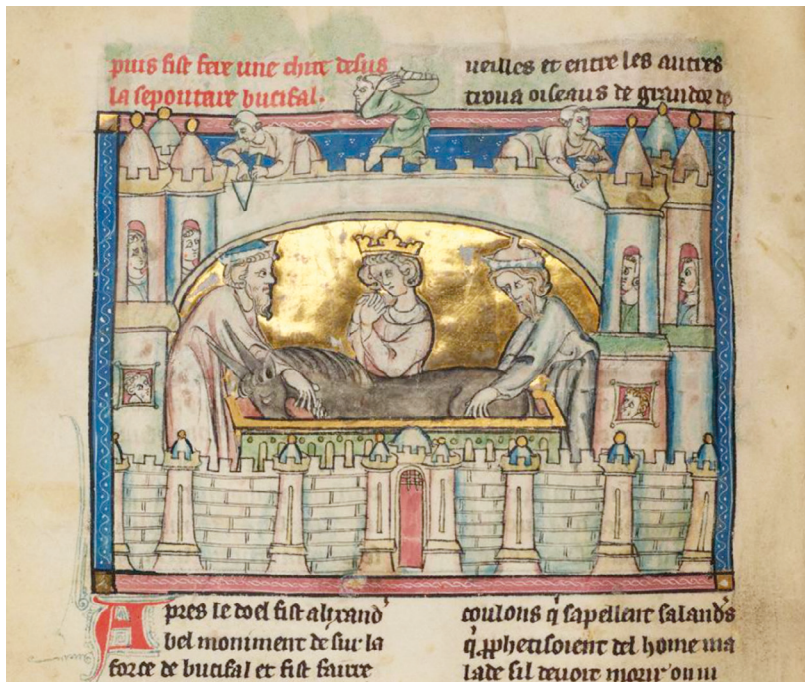 puis fist fere une cite desus
la sepouture bucifal.
Apres le doel fist alixand'
bel moniment de sur la
force de bucifal et fist faire
ueilles et entre les autres
troua oiseaus de grandor de
coulons q̇ sapellent salands
q̇ ꝓphetisoient del home ma
lade sil deuoit morir ou